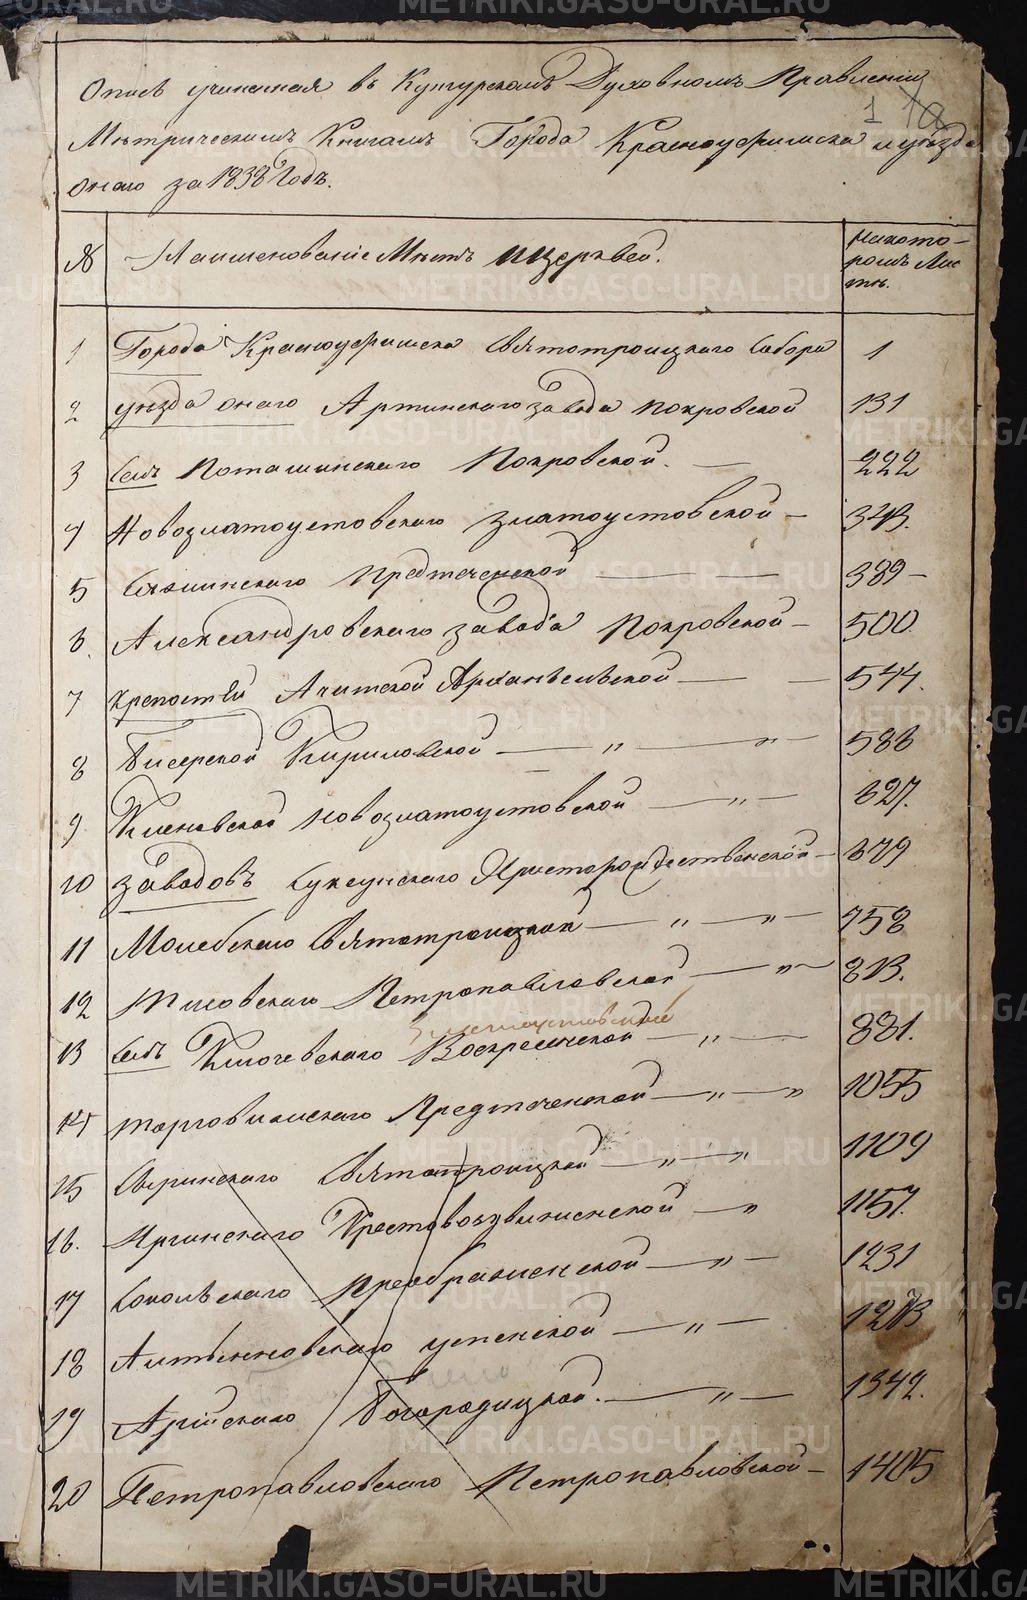 Опись учиненная въ Кунгурскомъ Духовномъ Правленіи
1 1а
Мѣтрическимъ Книгамъ Города Красноуфимска и уѣзда
онаго за 1838 Годъ.
№ Наименованіе Мѣстъ и церквей.
На кото-
ромъ Лис
тѣ.
1 Города Красноуфимска Святотроицкаго Собора 1
2 уѣзда онаго Артинскаго завода Покровской 131
3 Селъ Поташинскаго Покровской. — 222
4 Новозлатоустовскаго Златоустовской — 343.
5 Сажинскаго Предтеченской — — 389 —
6. Александровскаго завода Покровской — 500.
7 Крепостей Ачитской Архангельской — — 544.
8 Бисерской Кириловской — " — " — 586
9. Кленовской Новозлатоустовской — " — 627.
10 Заводовъ Суксунскаго Христорождественской — 679
11 Молебскаго Святотроицкой — " — " — 758
12 Тисовскаго Петропавловской — " — 813.
Златоустовской
13 Селъ Ключевскаго Воскресенской — " — 881.
14 Торговижскаго Предтеченской — " — " 1055
15 Сыринскаго Святотроицкой — " — " 1109
16. Иргинскаго Крестовоздвиженской — " 1157.
17 Сокольскаго Преображенской — " — 1231
18 Алтынновскаго Успенской — " — 1273
19 Арійскаго Богородицкой. — " — 1342.
20 Петропавловскаго Петропавловской — 1405
METRIKI.GASO-URAL.RU